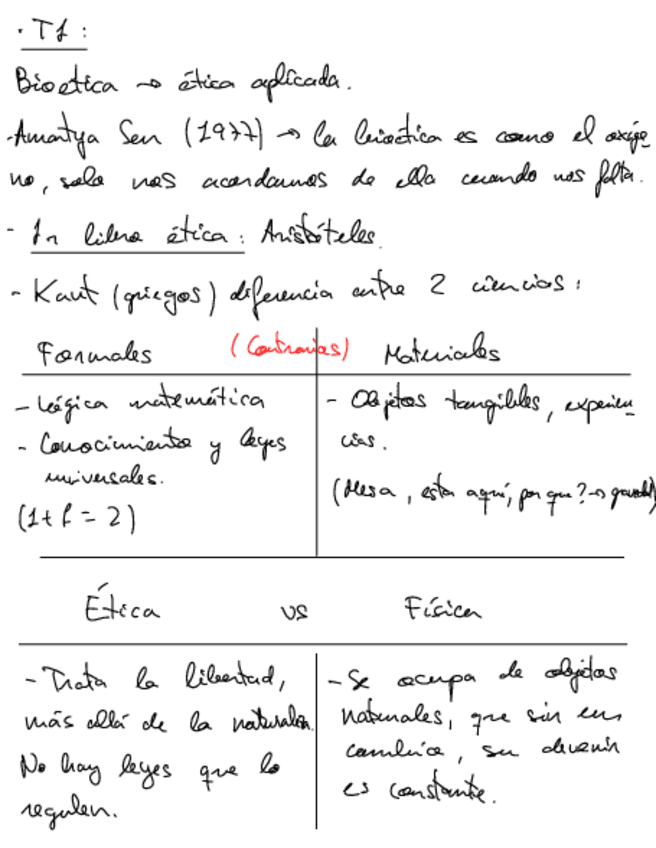 · T1 :
Bioetica → ética aplicada.
-Amartya Sen (1977) → la bioética es como el oxíge
no, solo nos acordamos de ella cuando nos falta.
- 1r libro ética : Aristóteles.
- Kant (griegos) diferencia entre 2 ciencias :
Formales (Contrarias) Materiales
- Lógica matemática
- Conocimiento y leyes
universales.
(1+1 = 2)
- Objetos tangibles, experien
cias.
(Mesa, esta aquí, por que? →
Ética vs Física
- Trata la libertad,
más allá de la naturaleza.
No hay leyes que lo
regulen.
- Se ocupa de objetos
naturales, que sin
cambio, su devenir
es constante.